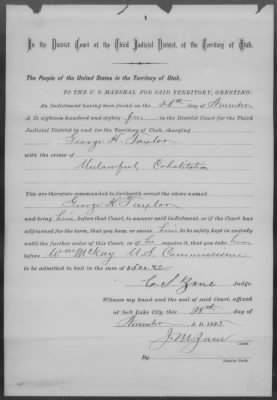 In the District Court of the Third Judicial District, of the Territory of Utah.
The People of the United States in the Territory of Utah,
TO THE U. S. MARSHAL FOR SAID TERRITORY, GREETING:
An Indictment having been found on the 28th day of November
A. D. eighteen hundred and eighty five in the District Court for the Third
Judicial District in and for the Territory of Utah, charging
George H. Taylor
with the crime of
Unlawful Cohabitation
You are therefore commanded to forthwith arrest the above named
George H. Taylor
and bring him before that Court, to answer said indictment, or if the Court has
adjourned for the term, that you bear or cause him to be safely kept in custody
until the further order of this Court; or if he require it, that you take him
before Wm McKay U.S. Commissioner
to be admitted to bail in the sum of
C. S. Zane Judge.
Witness my hand and the seal of said Court, affixed
at Salt Lake City, this 28th day of
November A. D. 1885.
Clerk.
By
Deputy Clerk.